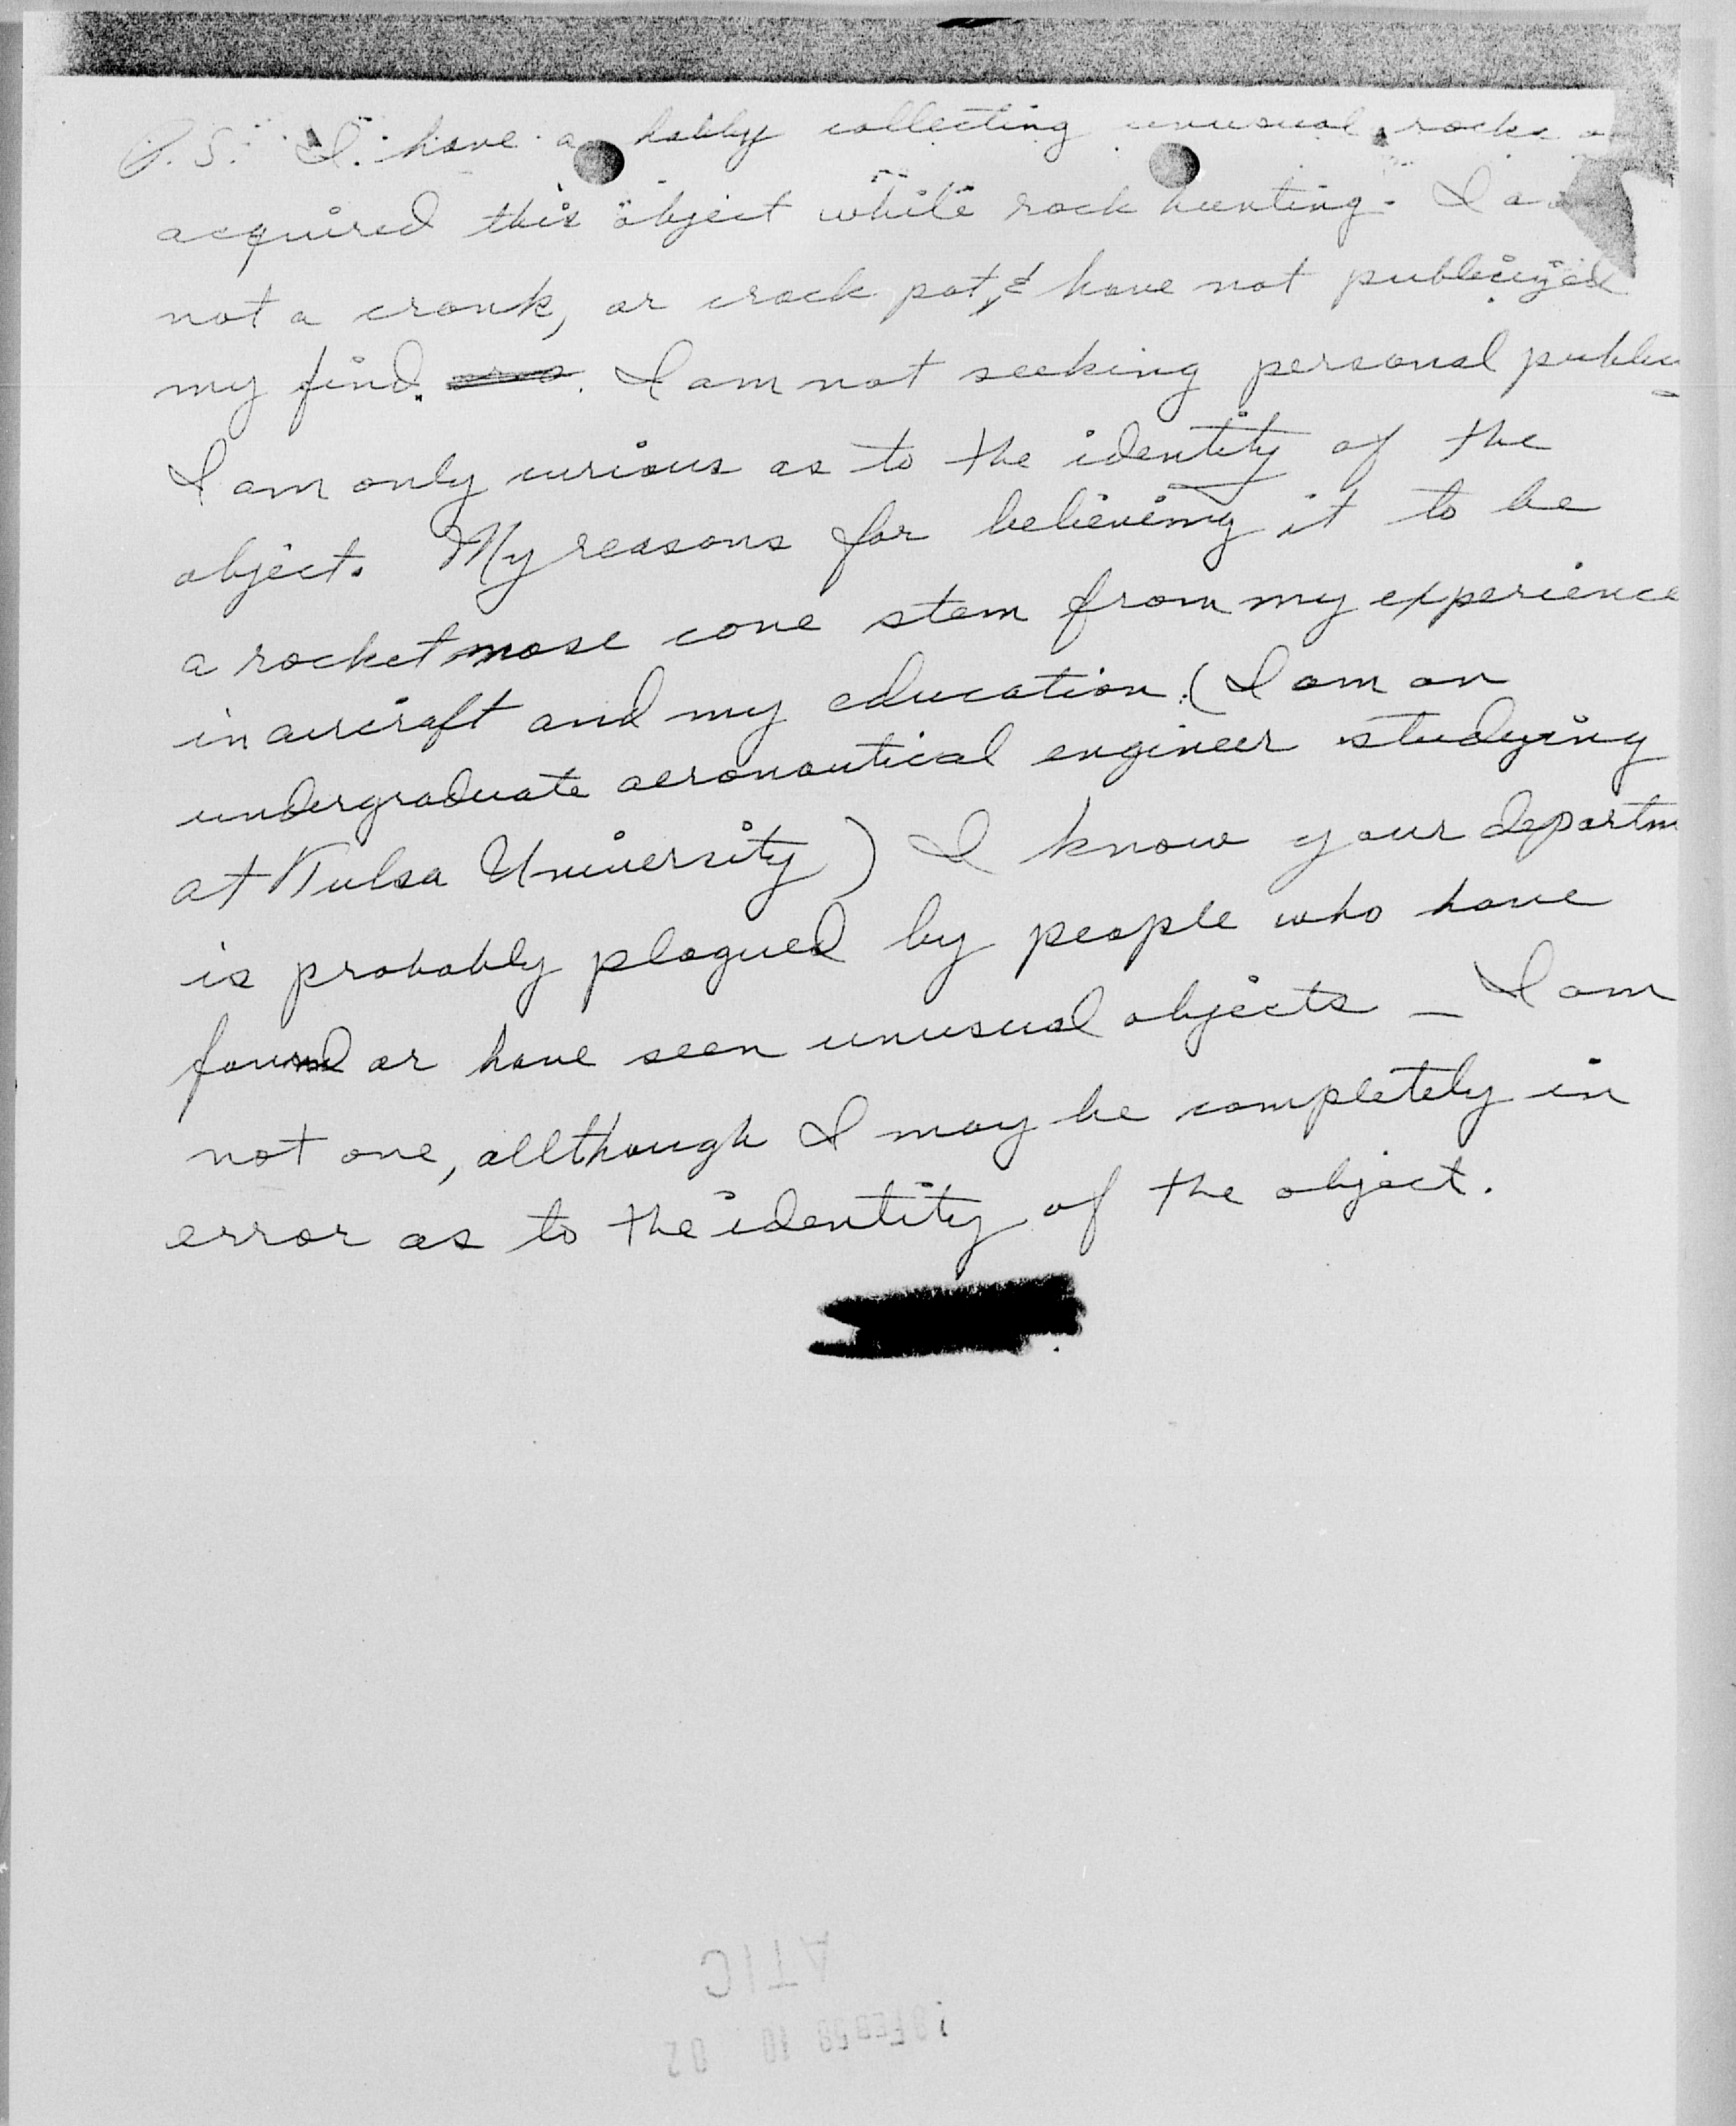 P.S. I have a hobby collecting unusual rocks
acquired this object while rock hunting. I a
not a crank, or crack pot, & have not publicized
my find. I am not seeking personal public
I am only curious as to the identity of the
object. My reasons for believeing it to be
a rocket nose cone stem from my experience
in aircraft and my education. (I am an
undergraduate aeronautical engineer studying
at Tulsa University) I know your departm
is probably plagued by people who have
found or have seen unusual objects — I am
not one, allthough I may be completely in
error as to the identity of the object.
ATIC
FEB 58 10 02